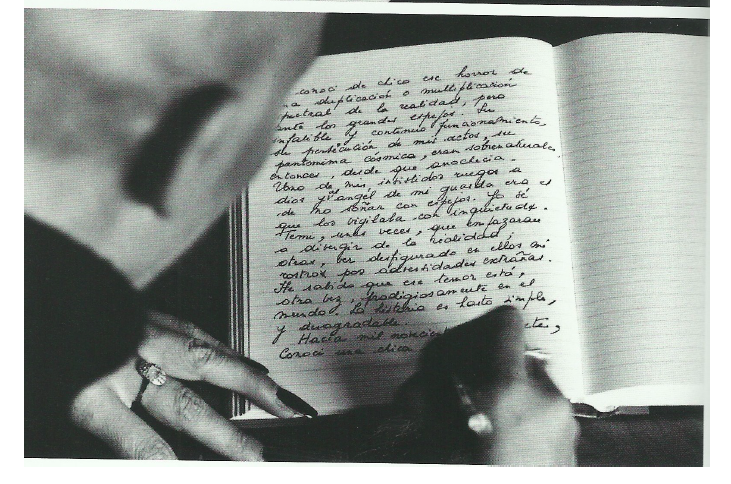 conocí de chico ese horror de
na duplicación o multiplicación
pectral de la realidad, pero
ante los grandes espejos. Su
infalible y continuo funcionamiento,
su persecución de mis actos, su
pantomima cósmica, eran sobrenaturales
entonces, desde que anochecía.
Uno de mis insistidos ruegos a
dios y al angél de mi guarda era el
de no soñar con espejos. Yo sé
que los vigilaba con inquietud.
Temí, unas veces, que empezaran
a divergir de la realidad;
otras, ver desfigurado en ellos mi
rostro por adversidades extrañas.
He sabido que ese temor está,
otra vez, prodigiosamente en el
mundo. La historia es harto simple,
y desagradable.
Hacia mil novecie ete,
Conocí una chica